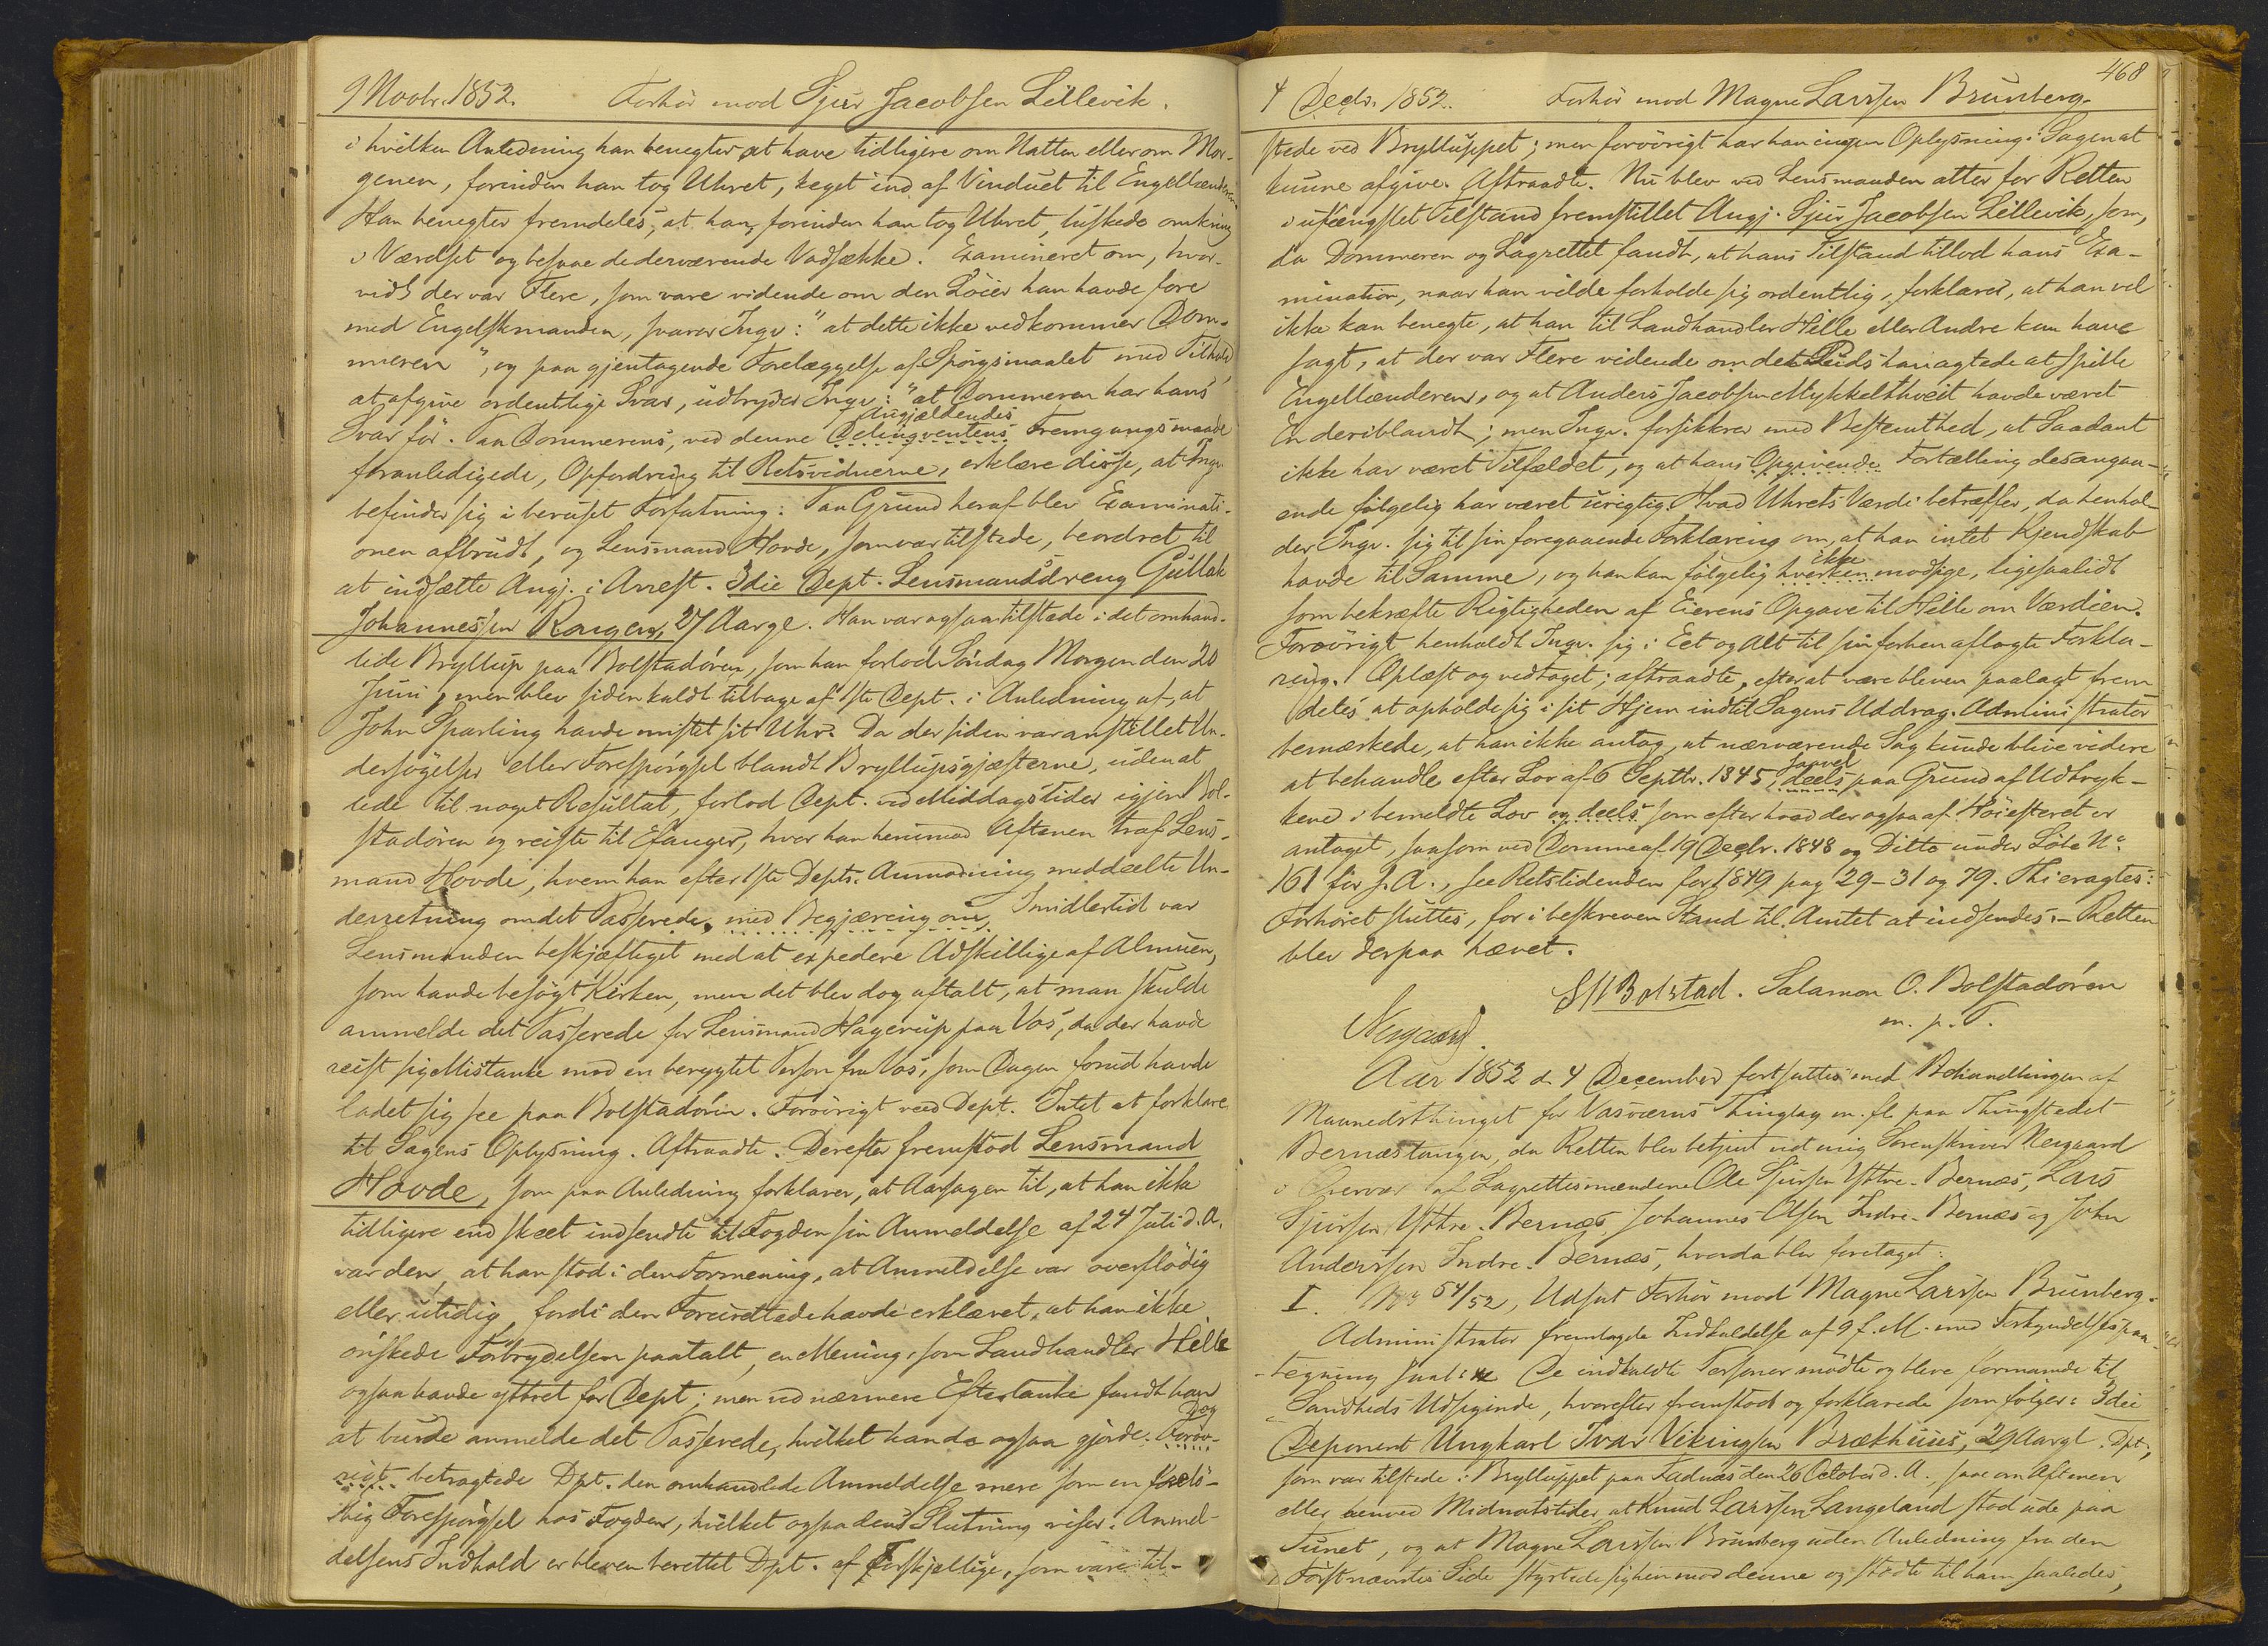 9 Novbr. 1852. Forhør mod Sjur Jacobsen Lillevik.
i hvilken Anledning han benegter at have tidligere om Natten eller om Mor-
genen, forinden han tog Uhret, keget ind af Vinduet til Engellænderen.
Han benegter fremdeles, at han, forinden han tog Uhret, luskede omkring
i Værelset og besaae de derværende Vadsække. Examineret om, hvor-
vidt der var Flere, som vare vidende om den Løier han havde fore
med Engelskmanden, svarer Inqv: "at dette ikke vedkommer Dom-
meren", og paa gjentagende Forelæggelse af Spørgsmaalet med Tilhold
at afgive ordentlige Svar, udbryder Inqv: "at Dommeren har hans
Svar før. Paa Dommerens, ved denne Delinqventens Angjældendes Fremgangsmaade
foranledigede, Opfordring til Retsvidnerne, erklære disse, at Inqv.
befinder sig i beruset Forfatning: Paa Grund heraf blev Examinati-
onen afbrudt, og Lensmand Hovde, som var tilstede, beordret til
at indsætte Angj. i Arrest. 3die Dept. Lensmandsdreng Gullak
Johannessen Rongen, 27 Aar gl. Han var ogsaa tilstede i det omhand-
lede Bryllup paa Bolstadøren, som han forlod Søndag Morgen den 20
Juni, men blev siden kaldt tilbage af 1ste Dept. i Anledning af, at
John Sparling havde mistet sit Uhr. Da der siden var anstillet Un-
dersøgelser eller Forespørgsel blandt Bryllupsgjæsterne, uden at
lede til noget Resultat, forlod Dept. ved Middagstider igjen Bol-
stadøren og reiste til Evanger, hvor han henimod Aftenen traf Lens-
mand Hovde, hvem han efter 1ste Depts. Anmodning meddeelte Un-
derretning om det Passerede, med Begjæring om. Imidlertid var
Lensmanden beskjæftiget med at expedere Adskillige af Almuen,
som havde besøgt Kirken, men det blev dog aftalt, at man skulde
anmelde det Passerede for Lensmand Hagerup paa Vos, da der havde
reist sig Mistanke mod en berygtet Person fra Vos, som Dagen forud havde
ladet sig see paa Bolstadøren. Forøvrigt veed Dept. Intet at forklare
til Sagens Oplysning. Aftraadte. Derefter fremstod Lensmand
Hovde, som paa Anledning forklarer, at Aarsagen til, at han ikke
tidligere end skeet indsendte til Fogden sin Anmeldelse af 24 Juli d. A.
var den, at han stod i den Formening, at Anmeldelse var overflødig
eller utidig fordi den Forurettede havde erklæret, at han ikke
ønskede Forbrydelsen paatalt, en Mening, som Landhandler Helle
ogsaa havde yttret for Dept; men ved nærmere Eftertanke fandt han
at burde anmelde det Passerede, hvilket han da ogsaa gjorde. Dog Forøv-
rigt betragtede Dpt. den omhandlede Anmeldelse mere som en
Forespørgsel hos Fogden, hvilket ogsaa dens Slutning viser. Anmel-
delsens Indhold er bleven berettet Dpt. af Forskjellige, som vare til-
468
4 Decbr. 1852. Forhør mod Magne Larssen Brunberg.
stede ved Brylluppet; men forøvrigt har han ingen Oplysning i Sagen at
kunne afgive. Aftraadte. Nu blev ved Lensmanden atter for Retten
i ufængslet Tilstand fremstillet Angj. Sjur Jacobsen Lillevik, som,
da Dommeren og Lagrettet fandt, at hans Tilstand tillod hans Exa-
mination, naar han vilde forholde sig ordentlig, forklarer, at han vel
ikke kan benegte, at han til Landhandler Helle eller Andre kan have
sagt, at der var Flere vidende om det Puds han agtede at spille
Engellænderen, og at Anders Jacobsen Mykkelthveit havde været
En deriblandt; men Inqv. forsikkrer med Bestemthed, at Saadant
ikke har været Tilfældet, og at hans Opgivende Fortælling desangaa-
ende følgelig har været urigtig. Hvad Uhrets Værdi betræffer, da henhol-
der Inqv. sig til sin foregaaende Forklaring om, at han intet Kjendskab
havde til Samme, og han kan følgelig hverken ikke modsige, ligesaalidt
som bekræfte Rigtigheden af Eierens Opgave til Helle om Værdien.
Forøvrigt henholdt Inqv. sig i Eet og Alt til sin forhen aflagte Forkla-
ring. Oplæst og vedtaget; aftraadte, efter at være bleven paalagt frem
deles at opholde sig i sit Hjem indtil Sagens Uddrag. Administrator
bemærkede, at han ikke antog, at nærværende Sag kunde blive videre
at behandle efter Lov af 6 Septbr. 1845, deels saavel paa Grund af Udtryk-
kene i bemeldte Lov og deels som efter hvad der ogsaa af Høiesteret er
antaget, saasom ved Domme af 19 Decbr. 1848 og Ditto under Løbe No
161 for f. A., see Retstidenden for 1849 pag 29-31 og 79. Thi eragtes:
Forhøret sluttes, for i beskreven Stand til Amtet at indsendes. - Retten
blev derpaa hævet.
Bolstad. Salamon O. Bolstadøren
Nergaard. m. p. P.
Aar 1852 d. 4 December fortsattes med Behandlingen af
Maanedsthinget for Vasværns Thinglag m. fl. paa Thingstedet
Bernæstangen, da Retten blev betjent ved mig Sorenskriver Nergaard
i Overvær af Lagrettesmændene Ole Sjursen Yttre-Bernæs, Lars
Sjursen Yttre-Bernæs, Johannes Olsen Indre-Bernæs og John
Anderssen Indre-Bernæs, hvorda blev foretaget:
I. No 54/52, Udsat Forhør mod Magne Larssen Brunberg.
Administrator fremlagde Indkaldelse af 9 f. M. med Forkyndelsespaa-
tegning saal: De indkaldte Personer mødte og bleve formanede til
Sandheds Udsigende, hvorefter fremstod og forklarede som følger: 3die
Deponent Ungkarl Ivar Vikingsen Brækhuus, 29 Aar gl. Dpt,
som var tilstede i Brylluppet paa Fadnæs den 26 October d. A., saae om Aftenen
eller henved Midnatstider, at Knud Larssen Langeland stod ude paa
Tunet, og at Magne Larssen Brunberg uden Anledning fra den
Førstnævntes Side styrtede sig hen mod denne og stødte til ham saaledes,